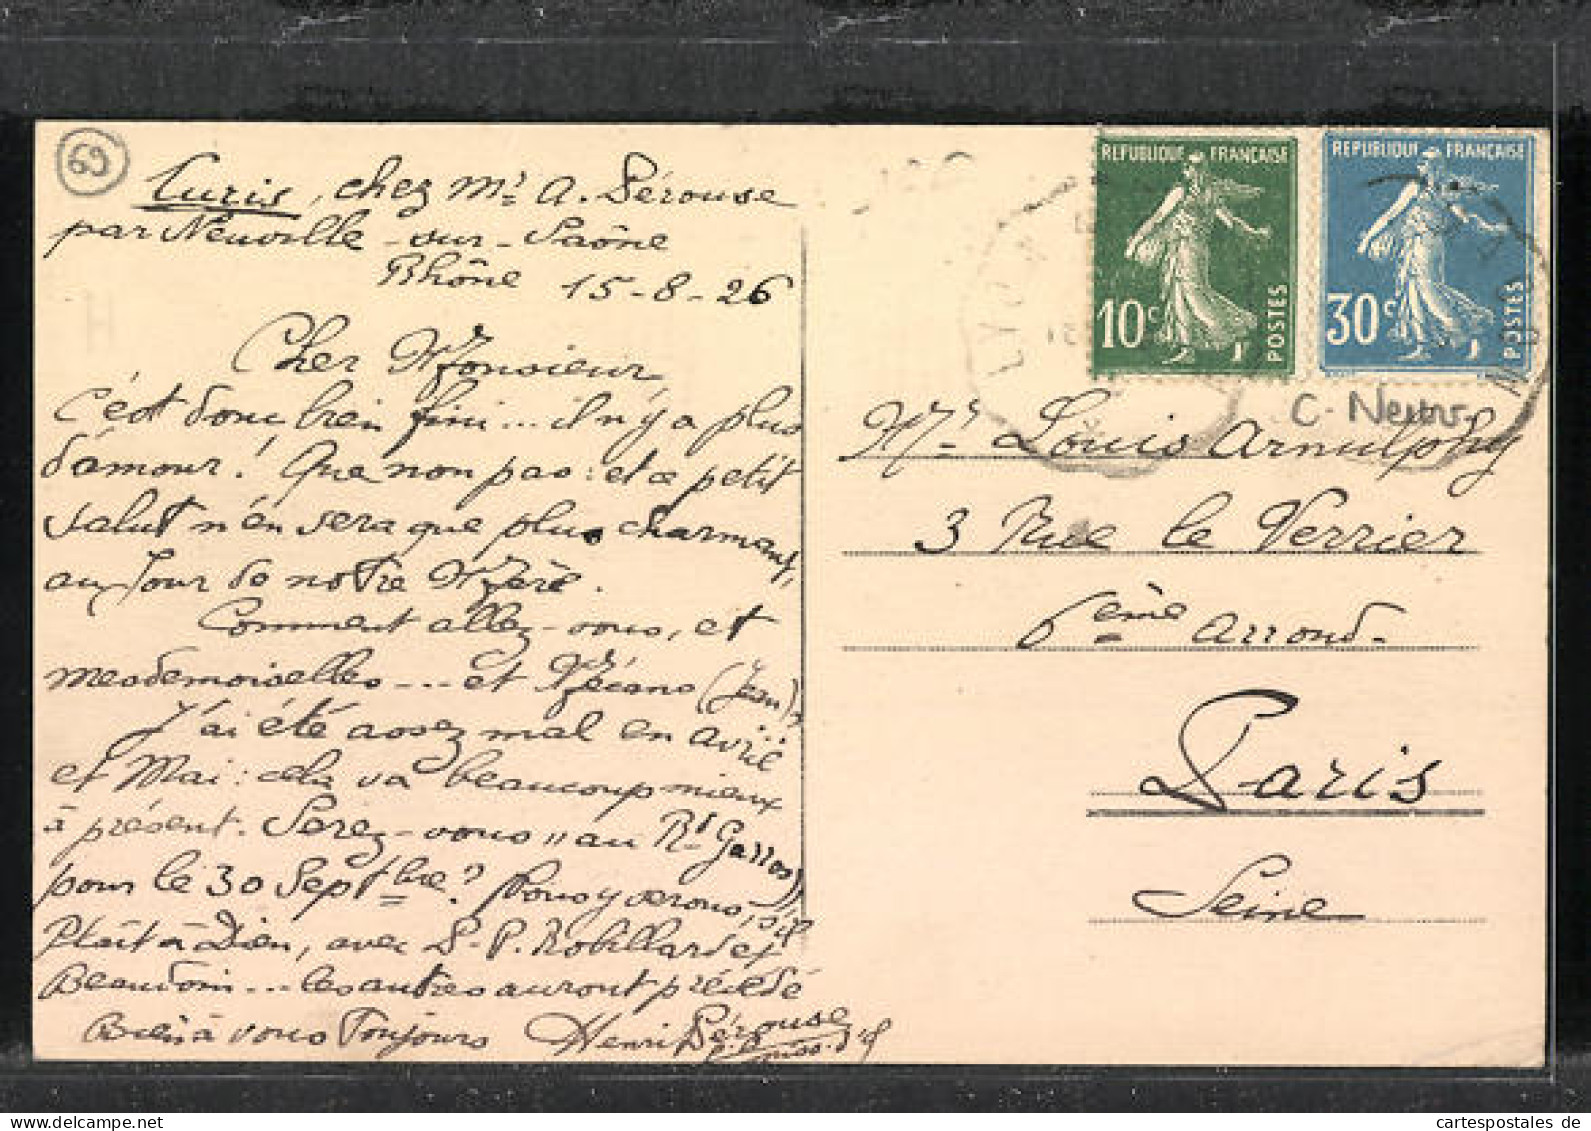 69
Curis, chez Mr A. Pérouse
par Neuville-sur-Saône
Rhône 15-8-26
Cher Monsieur
C'est donc bien fini... il n'y a plus
d'amour! Que non pas: et ce petit
salut n'en sera que plus charmant,
au jour de notre Mère.
Comment allez-vous, et
mesdemoiselles... et Mécano (Jean)
J'ai été assez mal en avril
et Mai: cela va beaucoup mieux
à présent. Serez-vous "au Rd Garros"
pour le 30 Septbre? Nous y serons, s'il
Plaît à Dieu, avec P. Robillard et
Beaudoin... les autres auront précédé
Bien à vous Toujours Henri Pérouse
REPUBLIQUE FRANÇAISE
10c
POSTES
REPUBLIQUE FRANÇAISE
30c
POSTES
LYON
C. Neuv
Mr Louis Arnulphy
3 Rue le Verrier
6ème Arrond-
Paris
Seine
cartespostales de